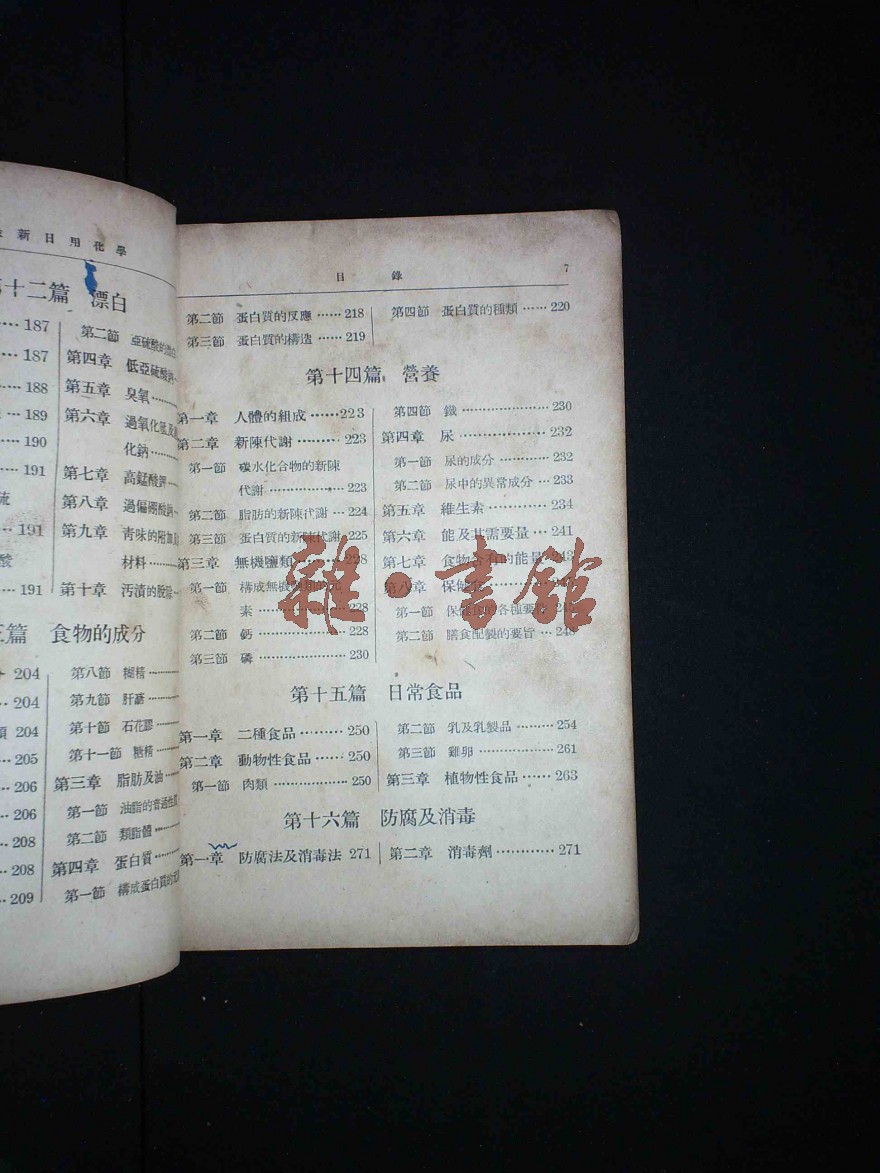 新日用化學
十二篇 漂白
187
187
188
189
190
191
硫
191
酸
191
第二節
第四章 低亞硫酸鈉
第五章 臭氧
第六章 過氧化氫及
化鈉
第七章 高錳酸鉀
第八章 過偏硼酸鈉
第九章 青味的附加
材料
第十章 汚漬的脫除
篇 食物的成分
204
204
204
205
206
206
208
208
209
第八節 糊精
第九節 肝醣
第十節 石花膠
第十一節 糖精
第三章 脂肪及油
第一節 油脂的普通性
第二節 類脂體
第四章 蛋白質
第一節 構成蛋白質的
目 錄 7
第二節 蛋白質的反應 …… 218
第三節 蛋白質的構造 …… 219
第四節 蛋白質的種類 …… 220
第十四篇 營養
第一章 人體的組成 …… 223
第二章 新陳代謝 ……… 223
第一節 碳水化合物的新陳
代謝 ……………… 223
第二節 脂肪的新陳代謝 … 224
第三節 蛋白質的新陳代謝 225
第三章 無機鹽類 228
第一節 構成無機鹽類的元
素 ……………… 228
第二節 鈣 ……………… 228
第三節 磷 ……………… 230
第四節 鐵 ……………… 230
第四章 尿 ……………… 232
第一節 尿的成分 ……… 232
第二節 尿中的異常成分 … 233
第五章 維生素 ………… 234
第六章 能及其需要量 … 241
第七章 食物含有的能量 243
第八章 保健食
第一節 保健食的各種要
第二節 膳食配製的要旨 …
第十五篇 日常食品
第一章 二種食品 ……… 250
第二章 動物性食品 …… 250
第一節 肉類 …………… 250
第二節 乳及乳製品 …… 254
第三節 雞卵 …………… 261
第三章 植物性食品 …… 263
第十六篇 防腐及消毒
第一章 防腐法及消毒法 271
第二章 消毒劑 ………… 271
雜·書館